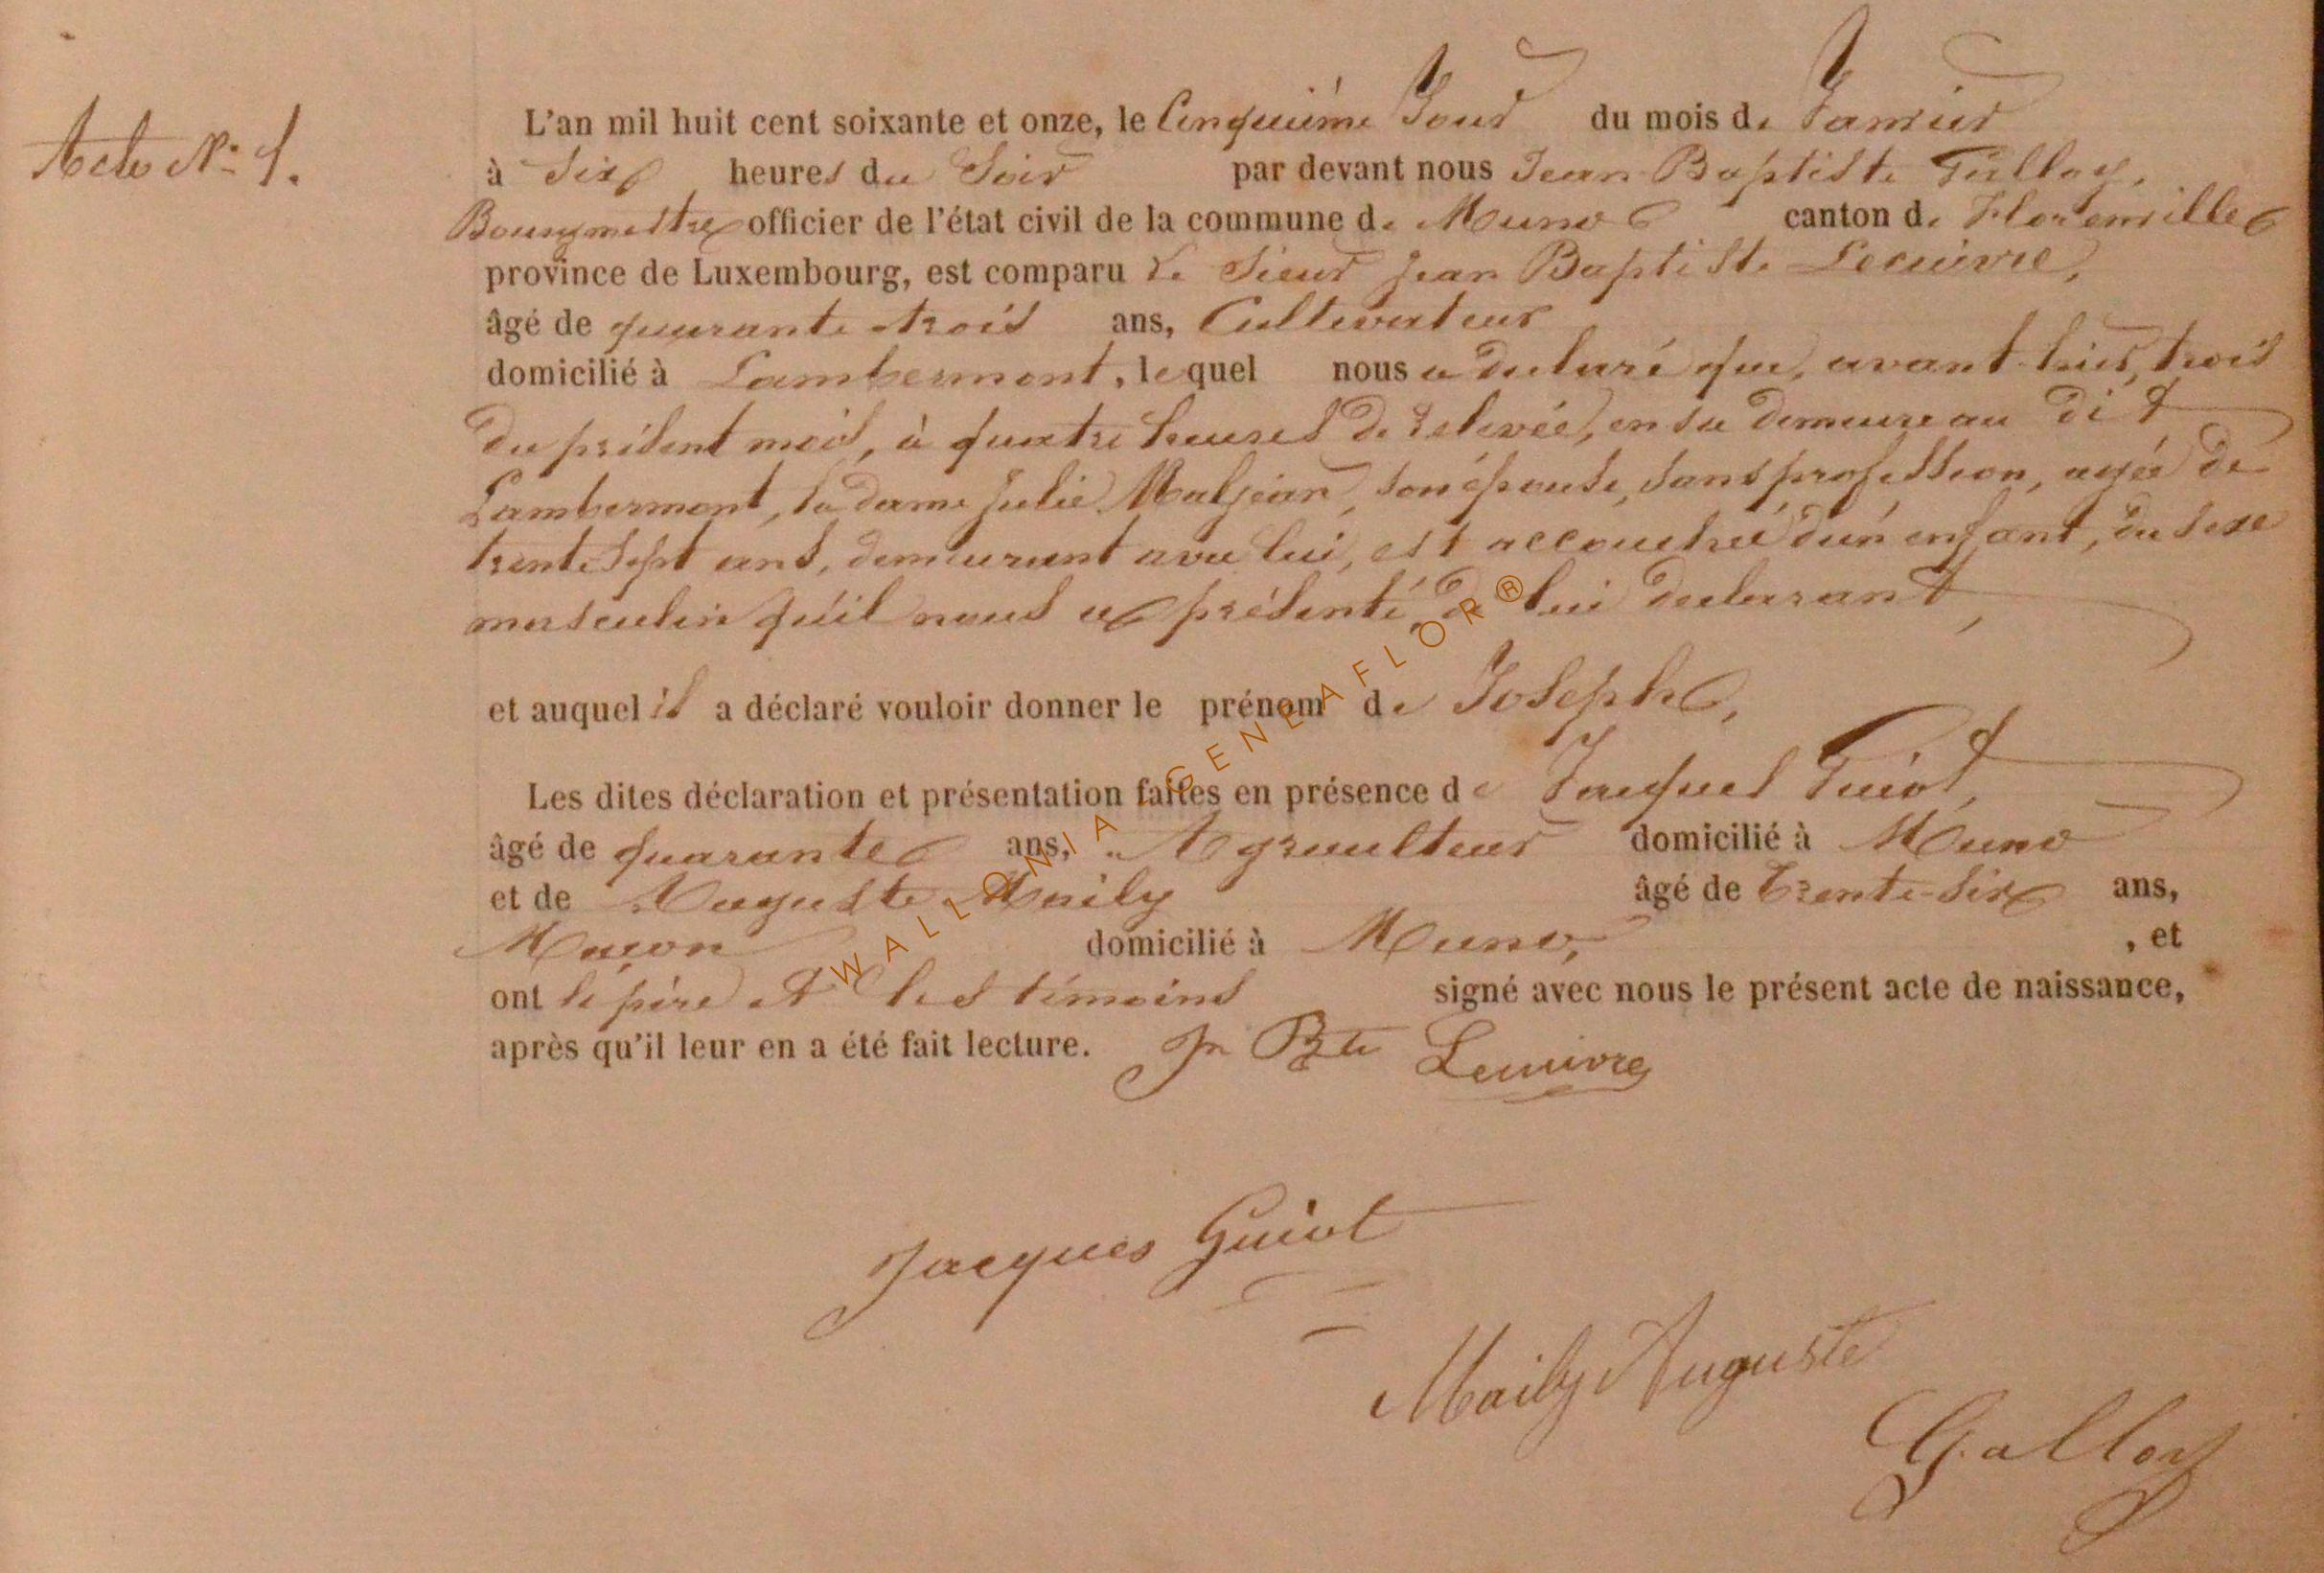 Acte N° 1.
L'an mil huit cent soixante et onze, le Cinquième Jour du mois de Janvier
à Six heures du Soir par devant nous Jean Baptiste Galloy,
Bourgmestre officier de l'état civil de la commune de Muno canton de Florenville
province de Luxembourg, est comparu Le Sieur Jean Baptiste Lecuivre,
âgé de quarante trois ans, Cultivateur
domicilié à Lambermont, lequel nous a déclaré que, avant hier, trois
du présent mois, à quatre heures de relevée, en sa demeure au dit
Lambermont, la dame Julie Maljean, son épouse, sans profession, agée de
trente sept ans, demeurant avec lui, est accouchée d'un enfant, du sexe
masculin qu'il nous a présenté, de lui déclarant,
et auquel il a déclaré vouloir donner le prénom de Joseph,
Les dites déclaration et présentation faites en présence de Jacques Guiot,
âgé de quarante ans, Agriculteur domicilié à Muno
et de Auguste Maily âgé de Trente-six ans,
Maçon domicilié à Muno, , et
ont le père et les témoins signé avec nous le présent acte de naissance,
après qu'il leur en a été fait lecture. Jn Bte Lecuivre
Jacques Guiot
Maily Auguste
Galloy
WALLONIA GENEAFLOR®